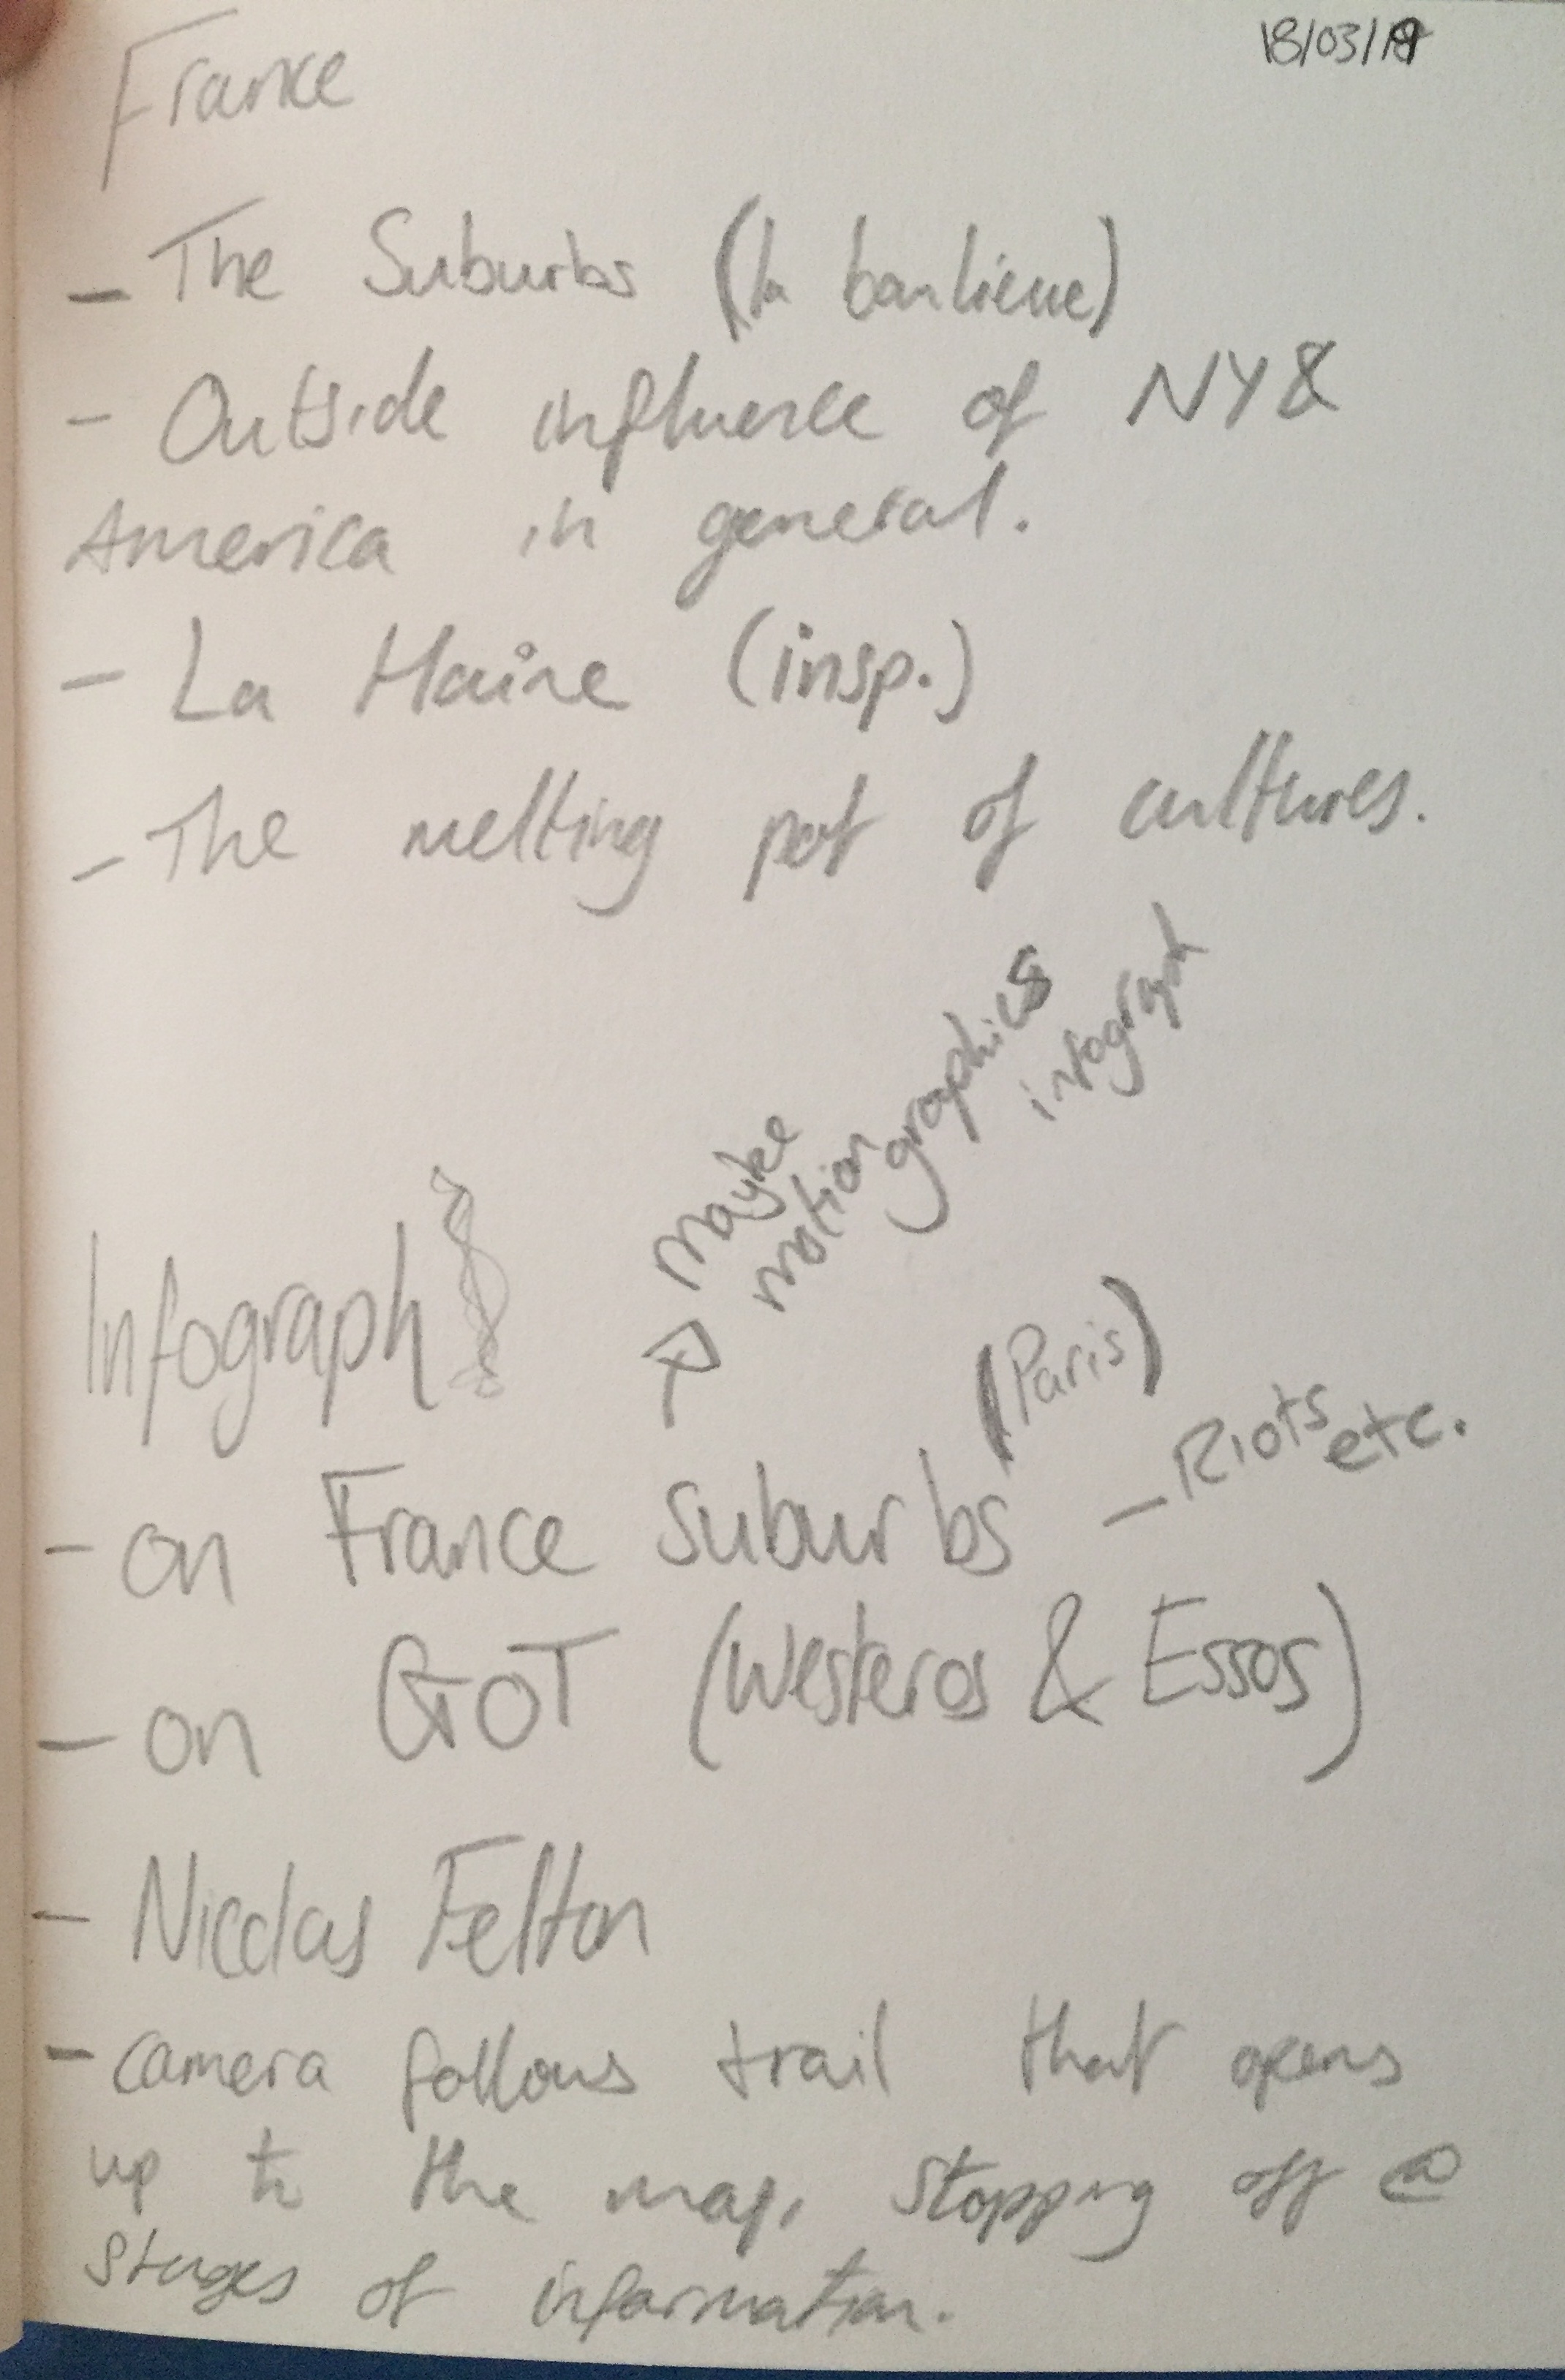 18/03/19
France
- The Suburbs (la banlieue)
- Outside influence of NY &
America in general.
- La Haine (insp.)
- The melting pot of cultures.
Maybe
motion graphics
infograph
Infograph
(Paris)
- on France suburbs - Riots etc.
- on GOT (Westeros & Essos)
- Nicolas Felton
- camera follows trail that opens
up to the map, stopping off @
stages of information.